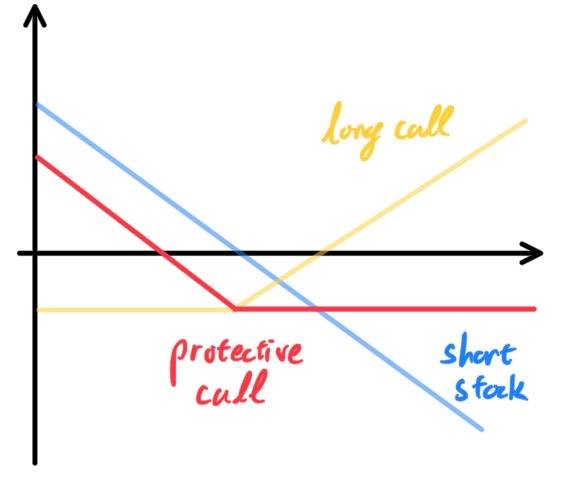 long call
protective
call
short
stock